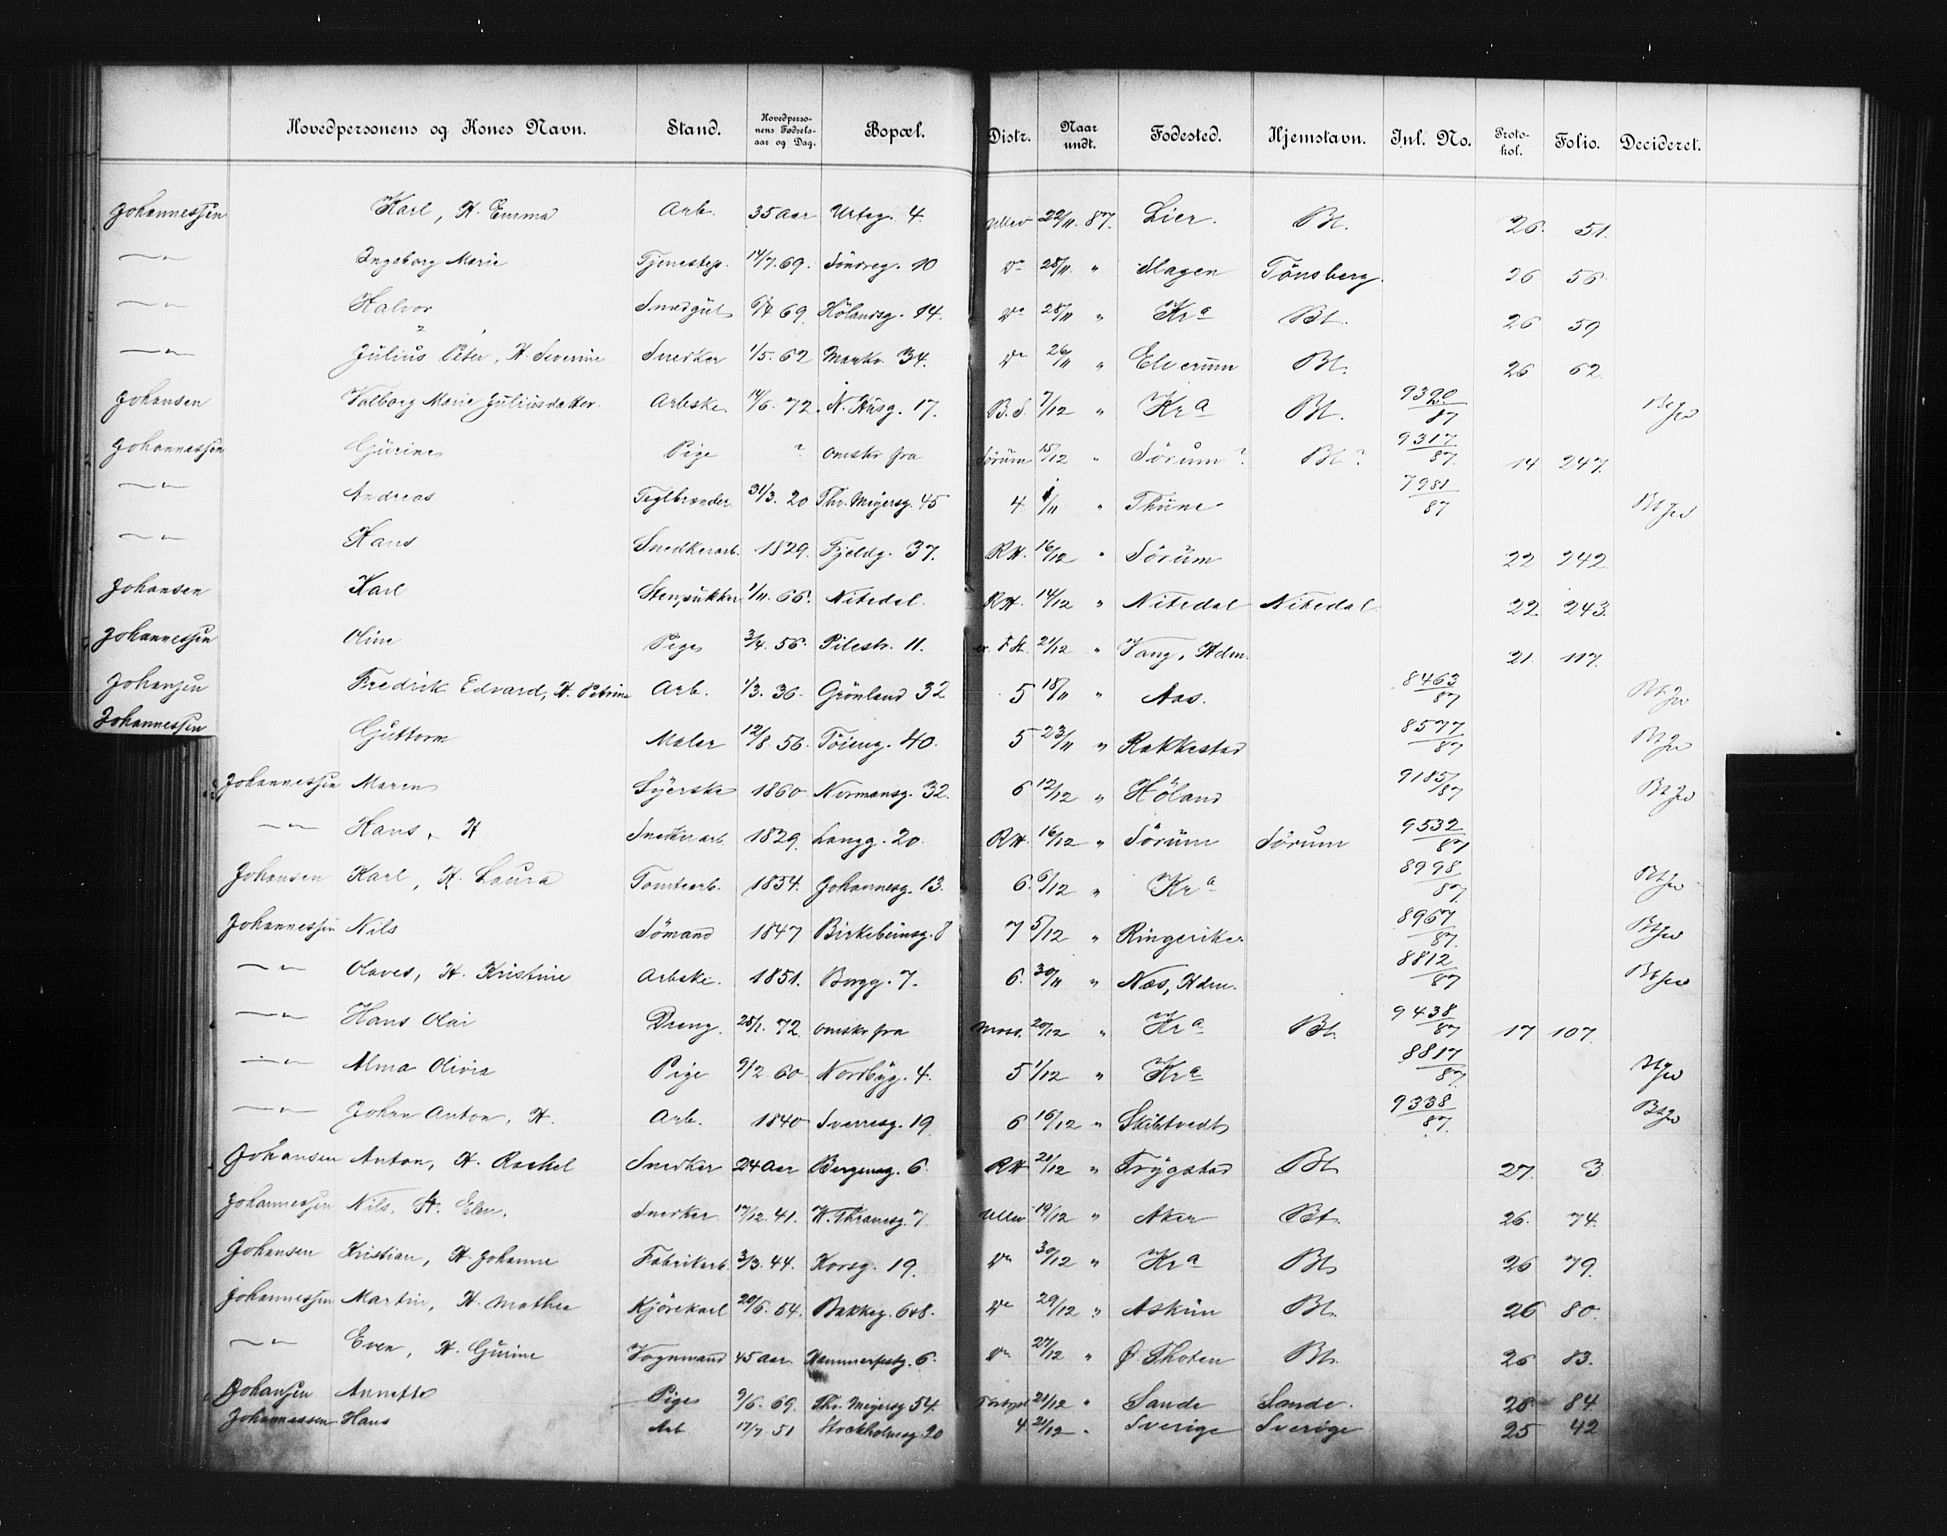 Hovedpersonens og Kones Navn. Stand. Hovedpersonens Fødsels-aar og Dag. Bopæl. Distr. Naar undt. Fødested. Hjemstavn. Inl. No. Protokol. Folio. Decideret.
Johannessen Karl, H. Emma Arb. 35 Aar Urteg. 4. Ullev 22/11 87. Lier. Bt. 26. 51.
—"— Ingeborg Marie Tjenestep. 14/7. 69. Söndreg. 10 Do 28/11 " Slagen Tönsberg. 26 56.
—"— Halvor Smedgut 6/4 69. Hölandsg. 14. Do 28/11 " Kra Bt. 26 59
—"— Julius Peter, H. Severine Snedker 1/5. 62 Markv. 34. Do 26/11 " Elverum Bt. 26 62.
Johansen Valborg Marie Juliusdatter Arbske. 14/6. 72. N. Husg. 17. B.S. 7/12 " Kra Bt. 9390/87
Johannessen Gurine Pige ? Sörum 15/12 " Sörum? Bt? 9317/87. 14 247.
—"— Andreas Teglbrænder 31/3. 20 Thv. Meyersg. 45 4. 1/11 " Thune 7981/87
—"— Hans Snedkerarb. 1829. Fjeldg. 37. RH. 16/12 " Sörum 22 242
Johansen Karl Stenpukker 1/11. 66. Nitedal. RH. 14/12 " Nitedal Nitedal. 22. 243.
Johannessen Oline Pige 3/4. 56. Pilestr. 11. 21/12 " Vang, Hdm. 21. 117.
Johansen Fredrik Edvard, H. Petrine Arb. 1/3. 36. Grönland 32 5 18/11 " Aas. 8463/87
Johannessen Guttorm Maler 12/8. 56. Töieng. 40. 5 23/11 " Rakkestad 8577/87
Johannessen Maren Syerske 1860 Normansg. 32. 6 12/12 " Höland 9185/87
—"— Hans, H Snedkerarb 1829. Langg. 20. RH. 16/12 " Sörum Sörum 9532/87
Johansen Karl, H. Laura Tomtearb. 1854. Johannesg. 13. 6. 6/12 " Kra 8998/87.
Johannessen Nils Sömand 1847 Birkebeinsg. 8 7 5/12 " Ringerike 8967/87.
—"— Olaves, H. Kristine Arbske. 1851. Borgg. 7. 6. 30/11 " Næs, Hdm. 8812/87
—"— Hans Olai Dreng. 25/1. 72. Moss. 20/12 " Kra Bt. 9438/87 17 107.
—"— Alma Olivia Pige 9/2. 60. Nordbyg. 4. 5 1/12 " Kra 8817/87.
—"— Johan Anton, H. Arb. 1840 Sverresg. 19. 6 16/12 " Skibtvedt 9338/87.
Johansen Anton, H. Rachel Snedker 24 Aar Bergensg. 6. RH 21/12 " Trygstad Bt. 27. 3.
Johannessen Nils, H. Elen. Snedker 17/12. 41. H. Thranesg. 7. Ullev 19/12 " Aker Bt. 26. 74.
Johansen Kristian, H. Johanne Fabrikarb. 3/3. 44. Korsg. 19. Do 30/12 " Kra Bt. 26 79.
Johannessen Martin, H. Mathea Kjörekarl 20/6. 54. Bakkeg. 6 & 8. Do 29/12 " Askim Bt. 26 80.
—"— Even, H. Gurine Vognmand 45 Aar. Hammerfestg. 6. Do 27/12 " Ø Thoten Bt. 26 83.
Johansen Annette Pige 9/6. 69. Thv. Meyersg 54. 21/12 " Sande Sande. 28 84.
Johannessen Hans Arb 17/7. 51 Stockholmsg. 20 4. 21/12 " Sverige Sverige 25 42